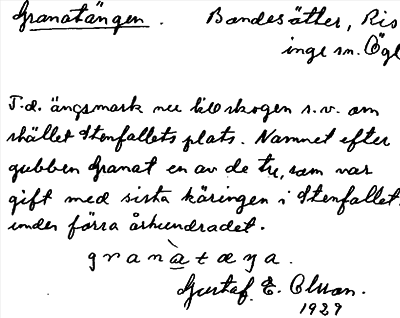 Granatängen. Bandesätter, Ris
inge sn. Ögl
T.d. ängsmark nu till skogen s.v. om
stället Stenfallets plats. Namnet efter
gubben Granat en av de tre, som var
gift med sista käringen i Stenfallet.
under förra århundradet.
granàtæŋa.
Gustaf E. Olsson.
1929